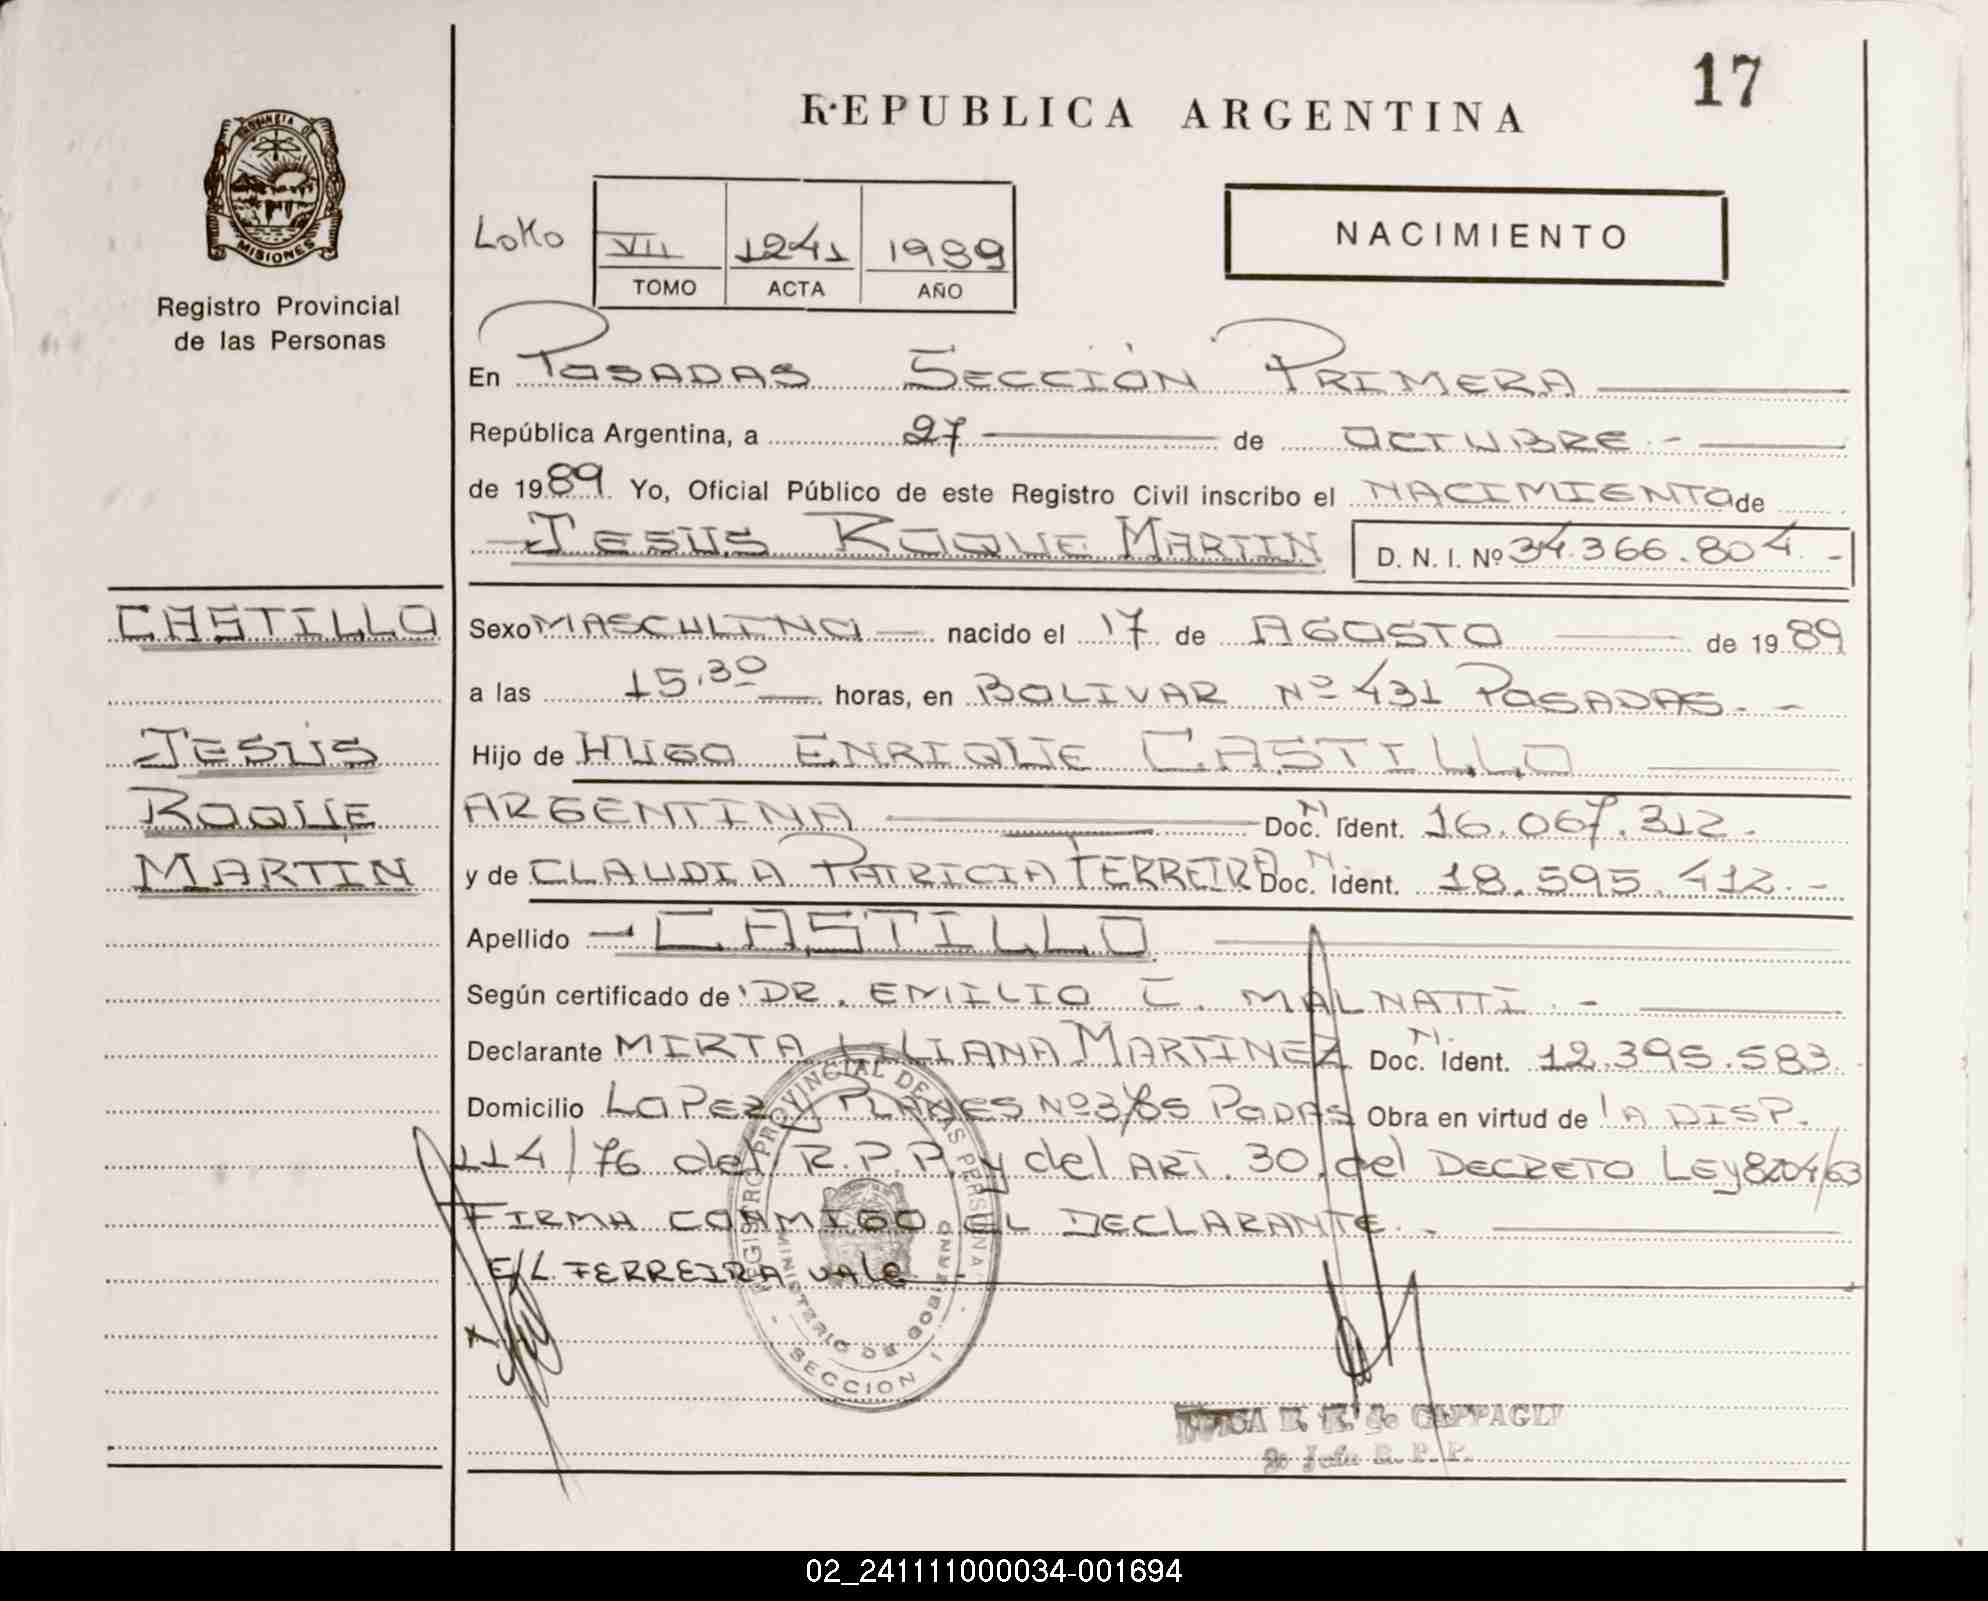 17
REPUBLICA ARGENTINA
PROVINCIA DE
MISIONES
Registro Provincial
de las Personas
NACIMIENTO
VII 1241 1989
TOMO ACTA AÑO
En POSADAS SECCIÓN PRIMERA
República Argentina, a 27 de OCTUBRE.-
de 1989. Yo, Oficial Público de este Registro Civil inscribo el NACIMIENTO de
JESUS ROQUE MARTIN D. N. I. Nº 34.366.804.-
CASTILLO
JESUS
ROQUE
MARTIN
Sexo MASCULINO nacido el 17 de AGOSTO de 1989
a las 15,30 horas, en BOLIVAR Nº 431 POSADAS.-
Hijo de HUGO ENRIQUE CASTILLO
ARGENTINA Doc. N. Ident. 16.067.312.
y de CLAUDIA PATRICIA FERREIRA Doc. N. Ident. 18.595.412.-
Apellido - CASTILLO
Según certificado de DR. EMILIO C. MALNATTI.-
Declarante MIRTA LILIANA MARTINEZ Doc. N. Ident. 12.395.583.
Domicilio LOPEZ Y PLANES Nº 385 PODAS Obra en virtud de LA DISP.
114/76 del R.P.P. y del ART. 30, del DECRETO LEY 8204/63
FIRMA CONMIGO EL DECLARANTE.-
E/L FERREIRA VALE.-
REGISTRO PROVINCIAL DE LAS PERSONAS
MINISTERIO DE GOBIERNO
SECCION 1
CAPPAGLI
R. P. P.
02_241111000034-001694